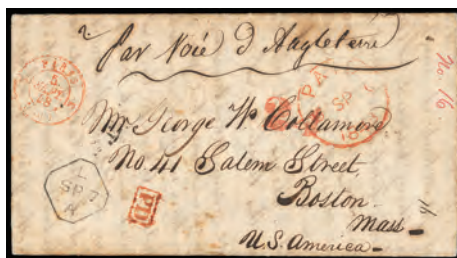 Par Voie d'Angleterre
No. 16
PARIS
5
PA
SP
Mr George W Collamore
No. 41 Salem Street,
L
SP 7
A
Boston
PD
Mass
U.S. America